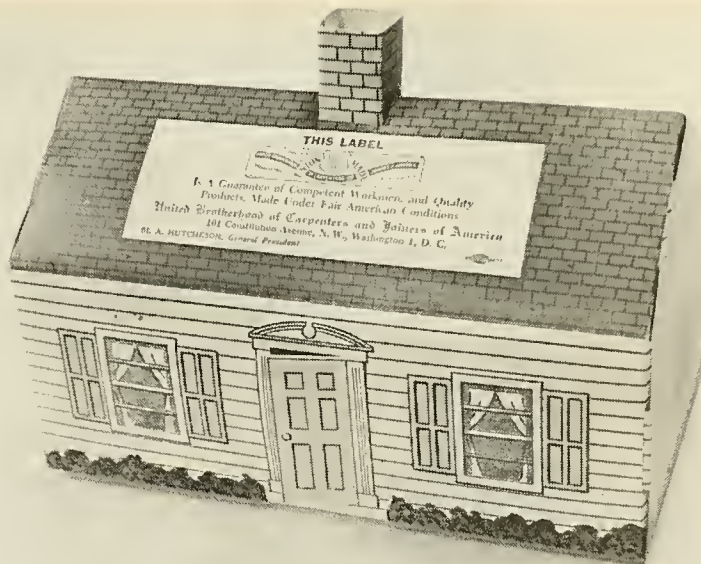 THIS LABEL
UNION MADE
Is A Guarantee of Competent Workmen, and Quality
Products, Made Under Fair American Conditions
United Brotherhood of Carpenters and Joiners of America
101 Constitution Avenue, N. W., Washington 1, D. C.
M. A. HUTCHESON, General President